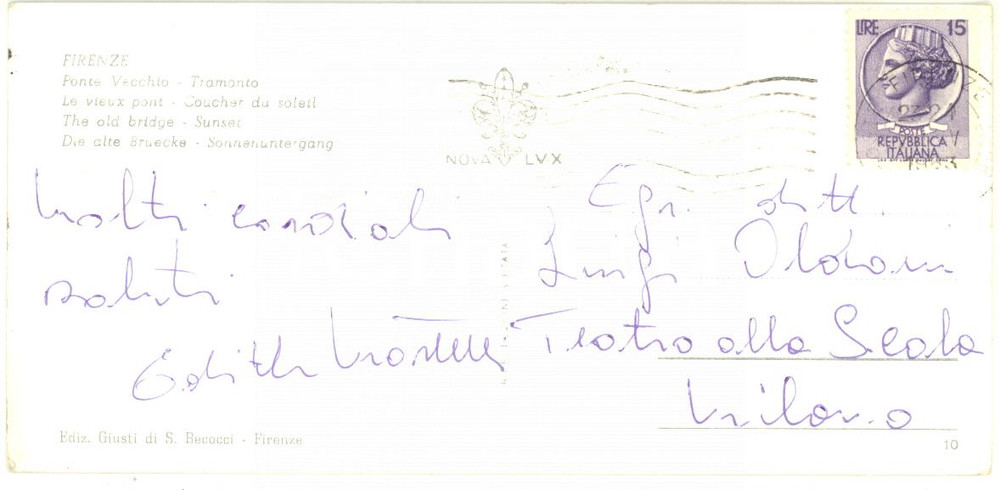 FIRENZE
Ponte Vecchio - Tramonto
Le vieux pont - Coucher du soleil
The old bridge - Sunset
Die alte Bruecke - Sonnenuntergang
NOVA LVX
LIRE 15
POSTE
REPVBBLICA
ITALIANA
Molti cordiali
saluti
Edith
Egr. dott.
Luigi Oldani
Teatro alla Scala
Milano
Ediz. Giusti di S. Becocci - Firenze
10